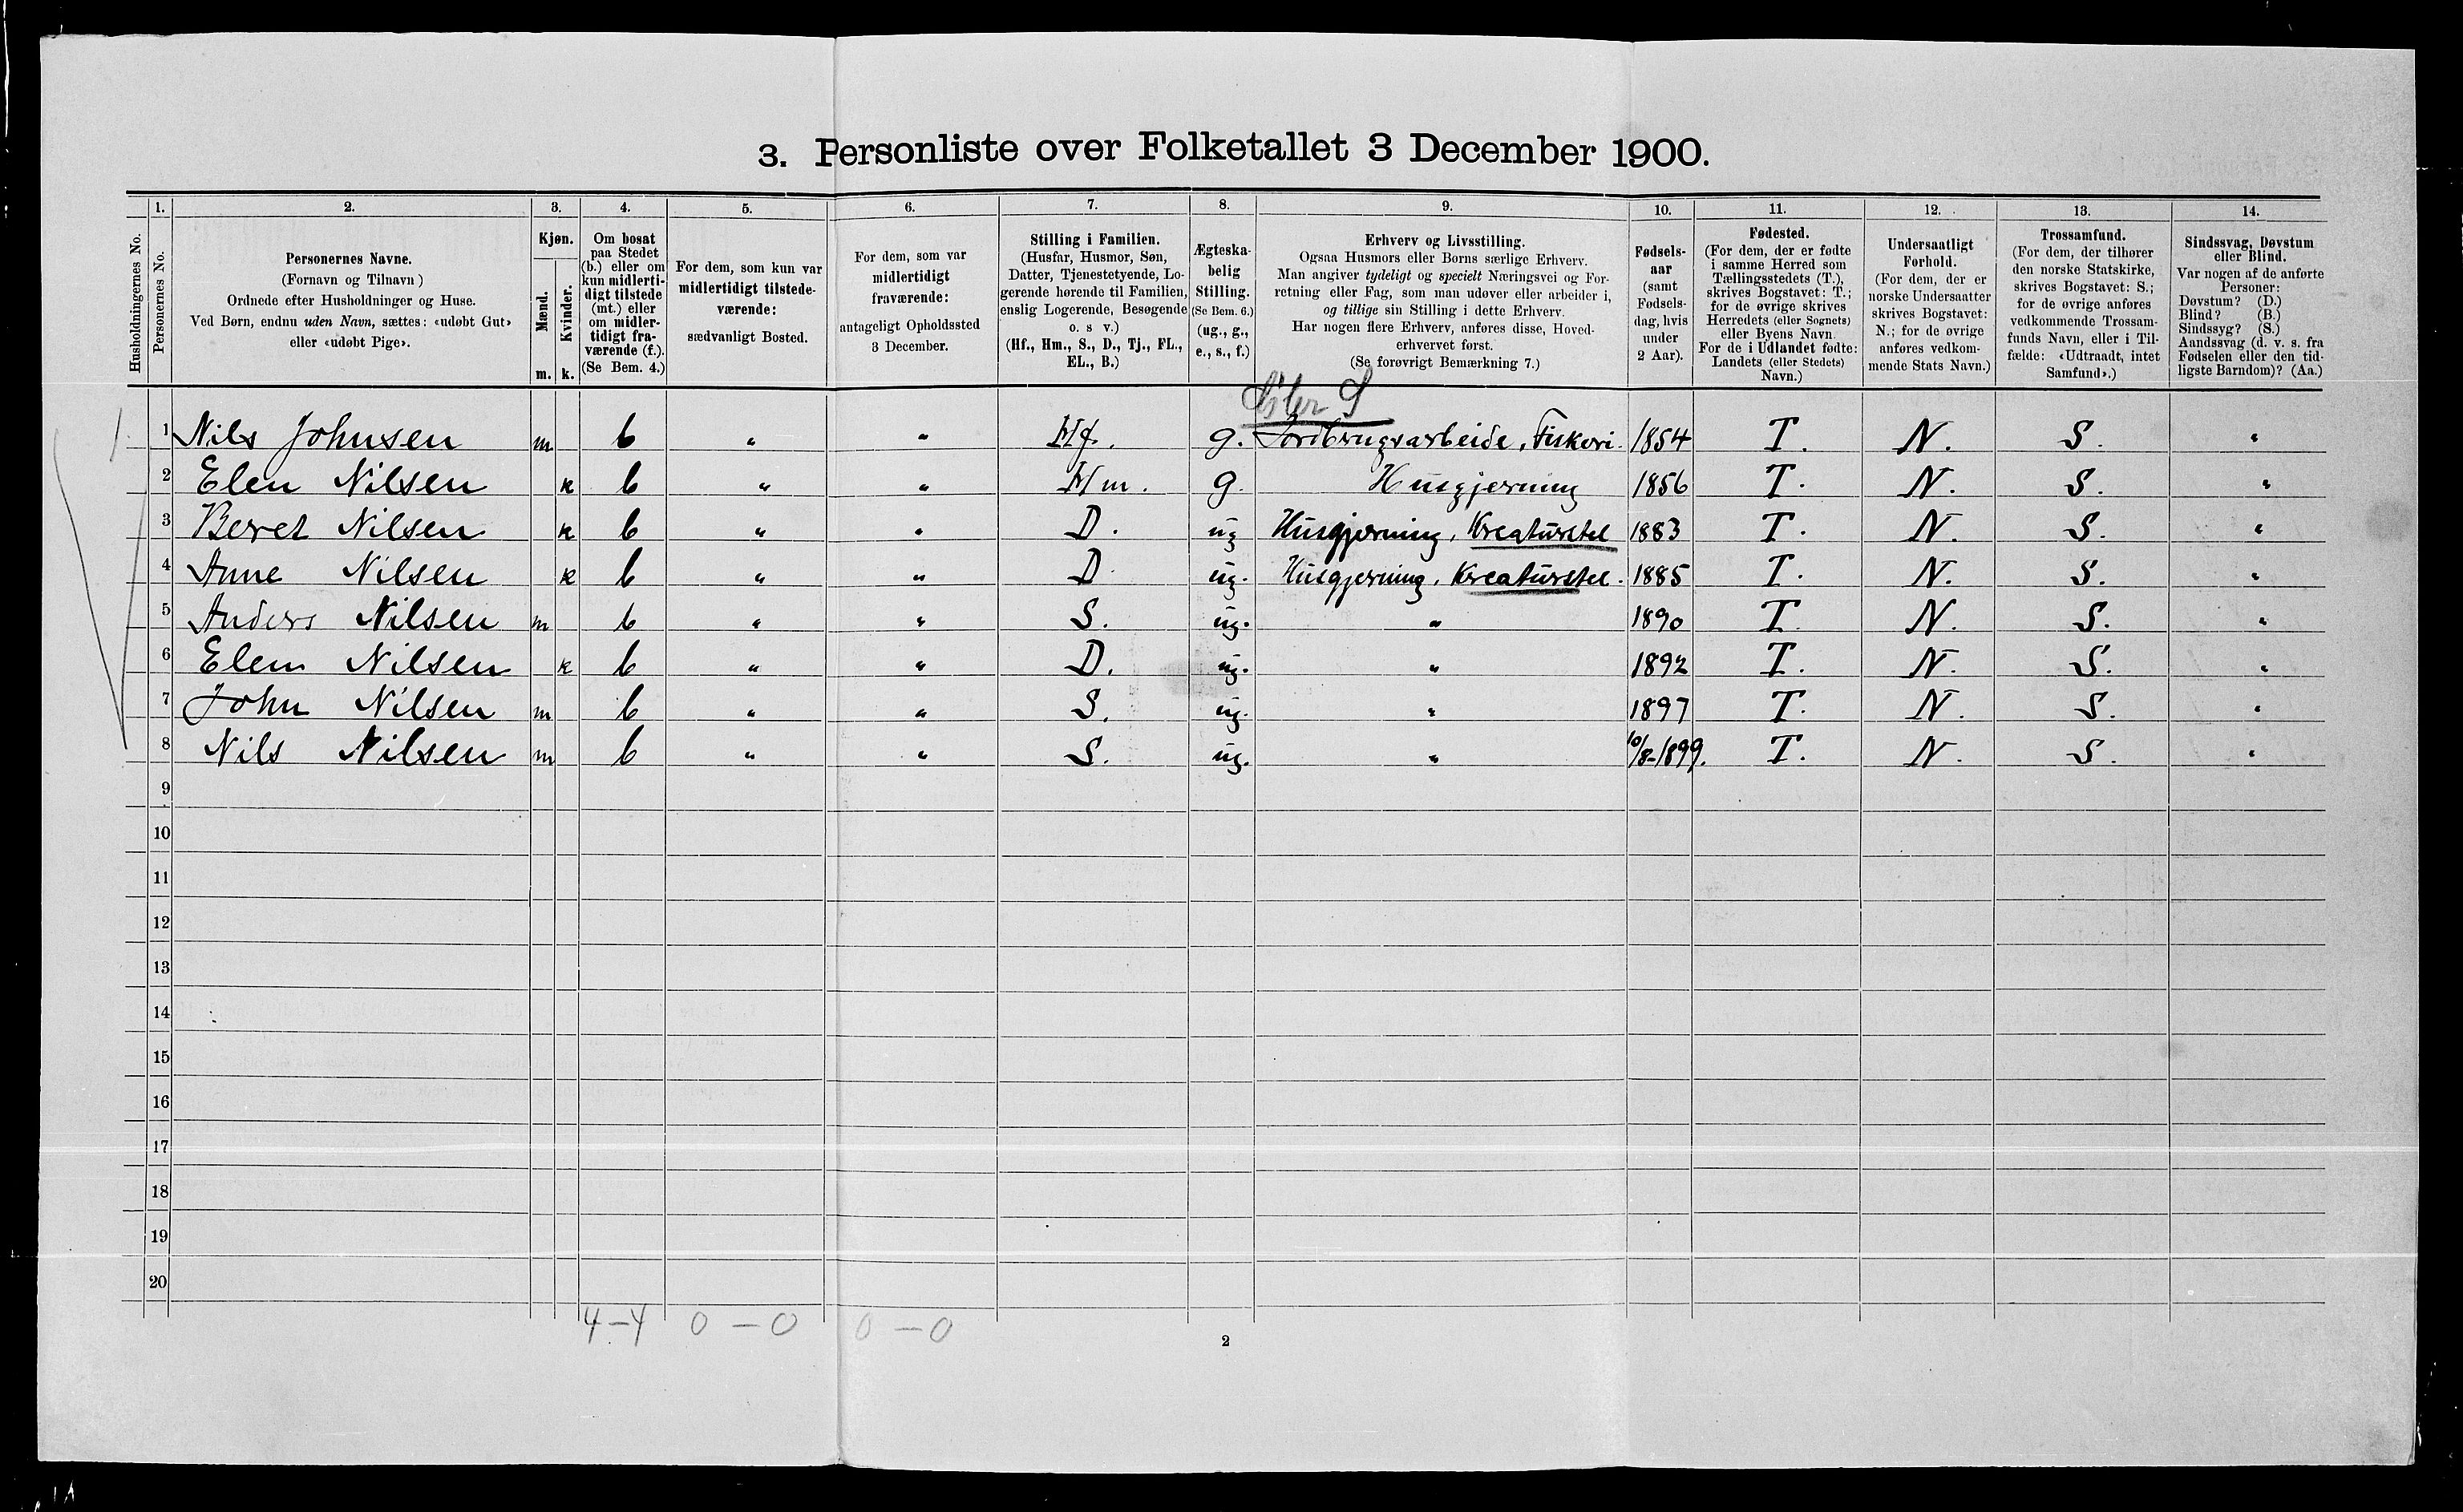 3. Personliste over Folketallet 3 December 1900.
1. 2. 3. 4. 5. 6. 7. 8. 9. 10. 11. 12. 13. 14.
Husholdningernes No.
Personernes No.
Personernes Navne.
(Fornavn og Tilnavn)
Ordnede efter Husholdninger og Huse.
Ved Børn, endnu uden Navn, sættes: «udøbt Gut»
eller «udøbt Pige».
Kjøn.
Mænd.
Kvinder.
m. k.
Om bosat
paa Stedet
(b.) eller om
kun midlerti-
digt tilstede
(mt.) eller
om midler-
tidigt fra-
værende (f.).
(Se Bem. 4.)
For dem, som kun var
midlertidigt tilstede-
værende:
sædvanligt Bosted.
For dem, som var
midlertidigt
fraværende:
antageligt Opholdssted
3 December.
Stilling i Familien.
(Husfar, Husmor, Søn,
Datter, Tjenestetyende, Lo-
gerende hørende til Familien,
enslig Logerende, Besøgende
o. s v.)
(Hf., Hm., S., D., Tj., FL.,
EL., B.)
Ægteska-
belig
Stilling.
(Se Bem. 6.)
(ug., g.,
e., s., f.)
Erhverv og Livsstilling.
Ogsaa Husmors eller Børns særlige Erhverv.
Man angiver tydeligt og specielt Næringsvei og For-
retning eller Fag, som man udøver eller arbeider i,
og tillige sin Stilling i dette Erhverv.
Har nogen flere Erhverv, anføres disse, Hoved-
erhvervet først.
(Se forøvrigt Bemærkning 7.)
Fødsels-
aar
(samt
Fødsels-
dag, hvis
under
2 Aar).
Fødested.
(For dem, der er fødte
i samme Herred som
Tællingsstedets (T.),
skrives Bogstavet: T.;
for de øvrige skrives
Herredets (eller Sognets)
eller Byens Navn.
For de i Udlandet fødte:
Landets (eller Stedets)
Navn.)
Undersaatligt
Forhold.
(For dem, der er
norske Undersaatter
skrives Bogstavet:
N.; for de øvrige
anføres vedkom-
mende Stats Navn.)
Trossamfund.
(For dem, der tilhører
den norske Statskirke,
skrives Bogstavet: S.;
for de øvrige anføres
vedkommende Trossam-
funds Navn, eller i Til-
fælde: «Udtraadt, intet
Samfund».)
Sindssvag, Døvstum
eller Blind.
Var nogen af de anførte
Personer:
Døvstum? (D.)
Blind? (B.)
Sindssyg? (S.)
Aandssvag (d. v. s. fra
Fødselen eller den tid-
ligste Barndom)? (Aa.)
1 Nils Johnsen m b " " Hf. g. Jordbrugsarbeide, Fiskeri. 1854 T. N. S. "
2 Elen Nilsen k b " " Hm. g. Husgjerning 1856 T. N. S. "
3 Beret Nilsen k b " " D. ug Husgjerning, Kreaturstel 1883 T. N. S. "
4 Anne Nilsen k b " " D. ug. Husgjerning, Kreaturstel. 1885 T. N. S. "
5 Anders Nilsen m b " " S. ug. " 1890 T. N. S. "
6 Elen Nilsen k b " " D. ug. " 1892 T. N. S. "
7 John Nilsen m b " " S. ug. " 1897 T. N. S. "
8 Nils Nilsen m b " " S. ug. " 10/8-1899. T. N. S. "
9
10
11
12
13
14
15
16
17
18
19
20
4-4 0-0 0-0
2